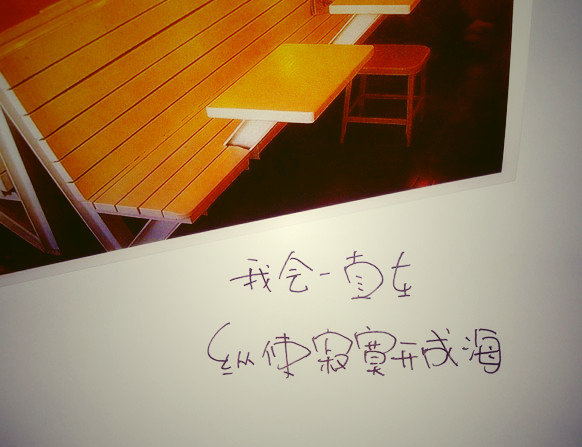 我会一直在
纵使寂寞开成海